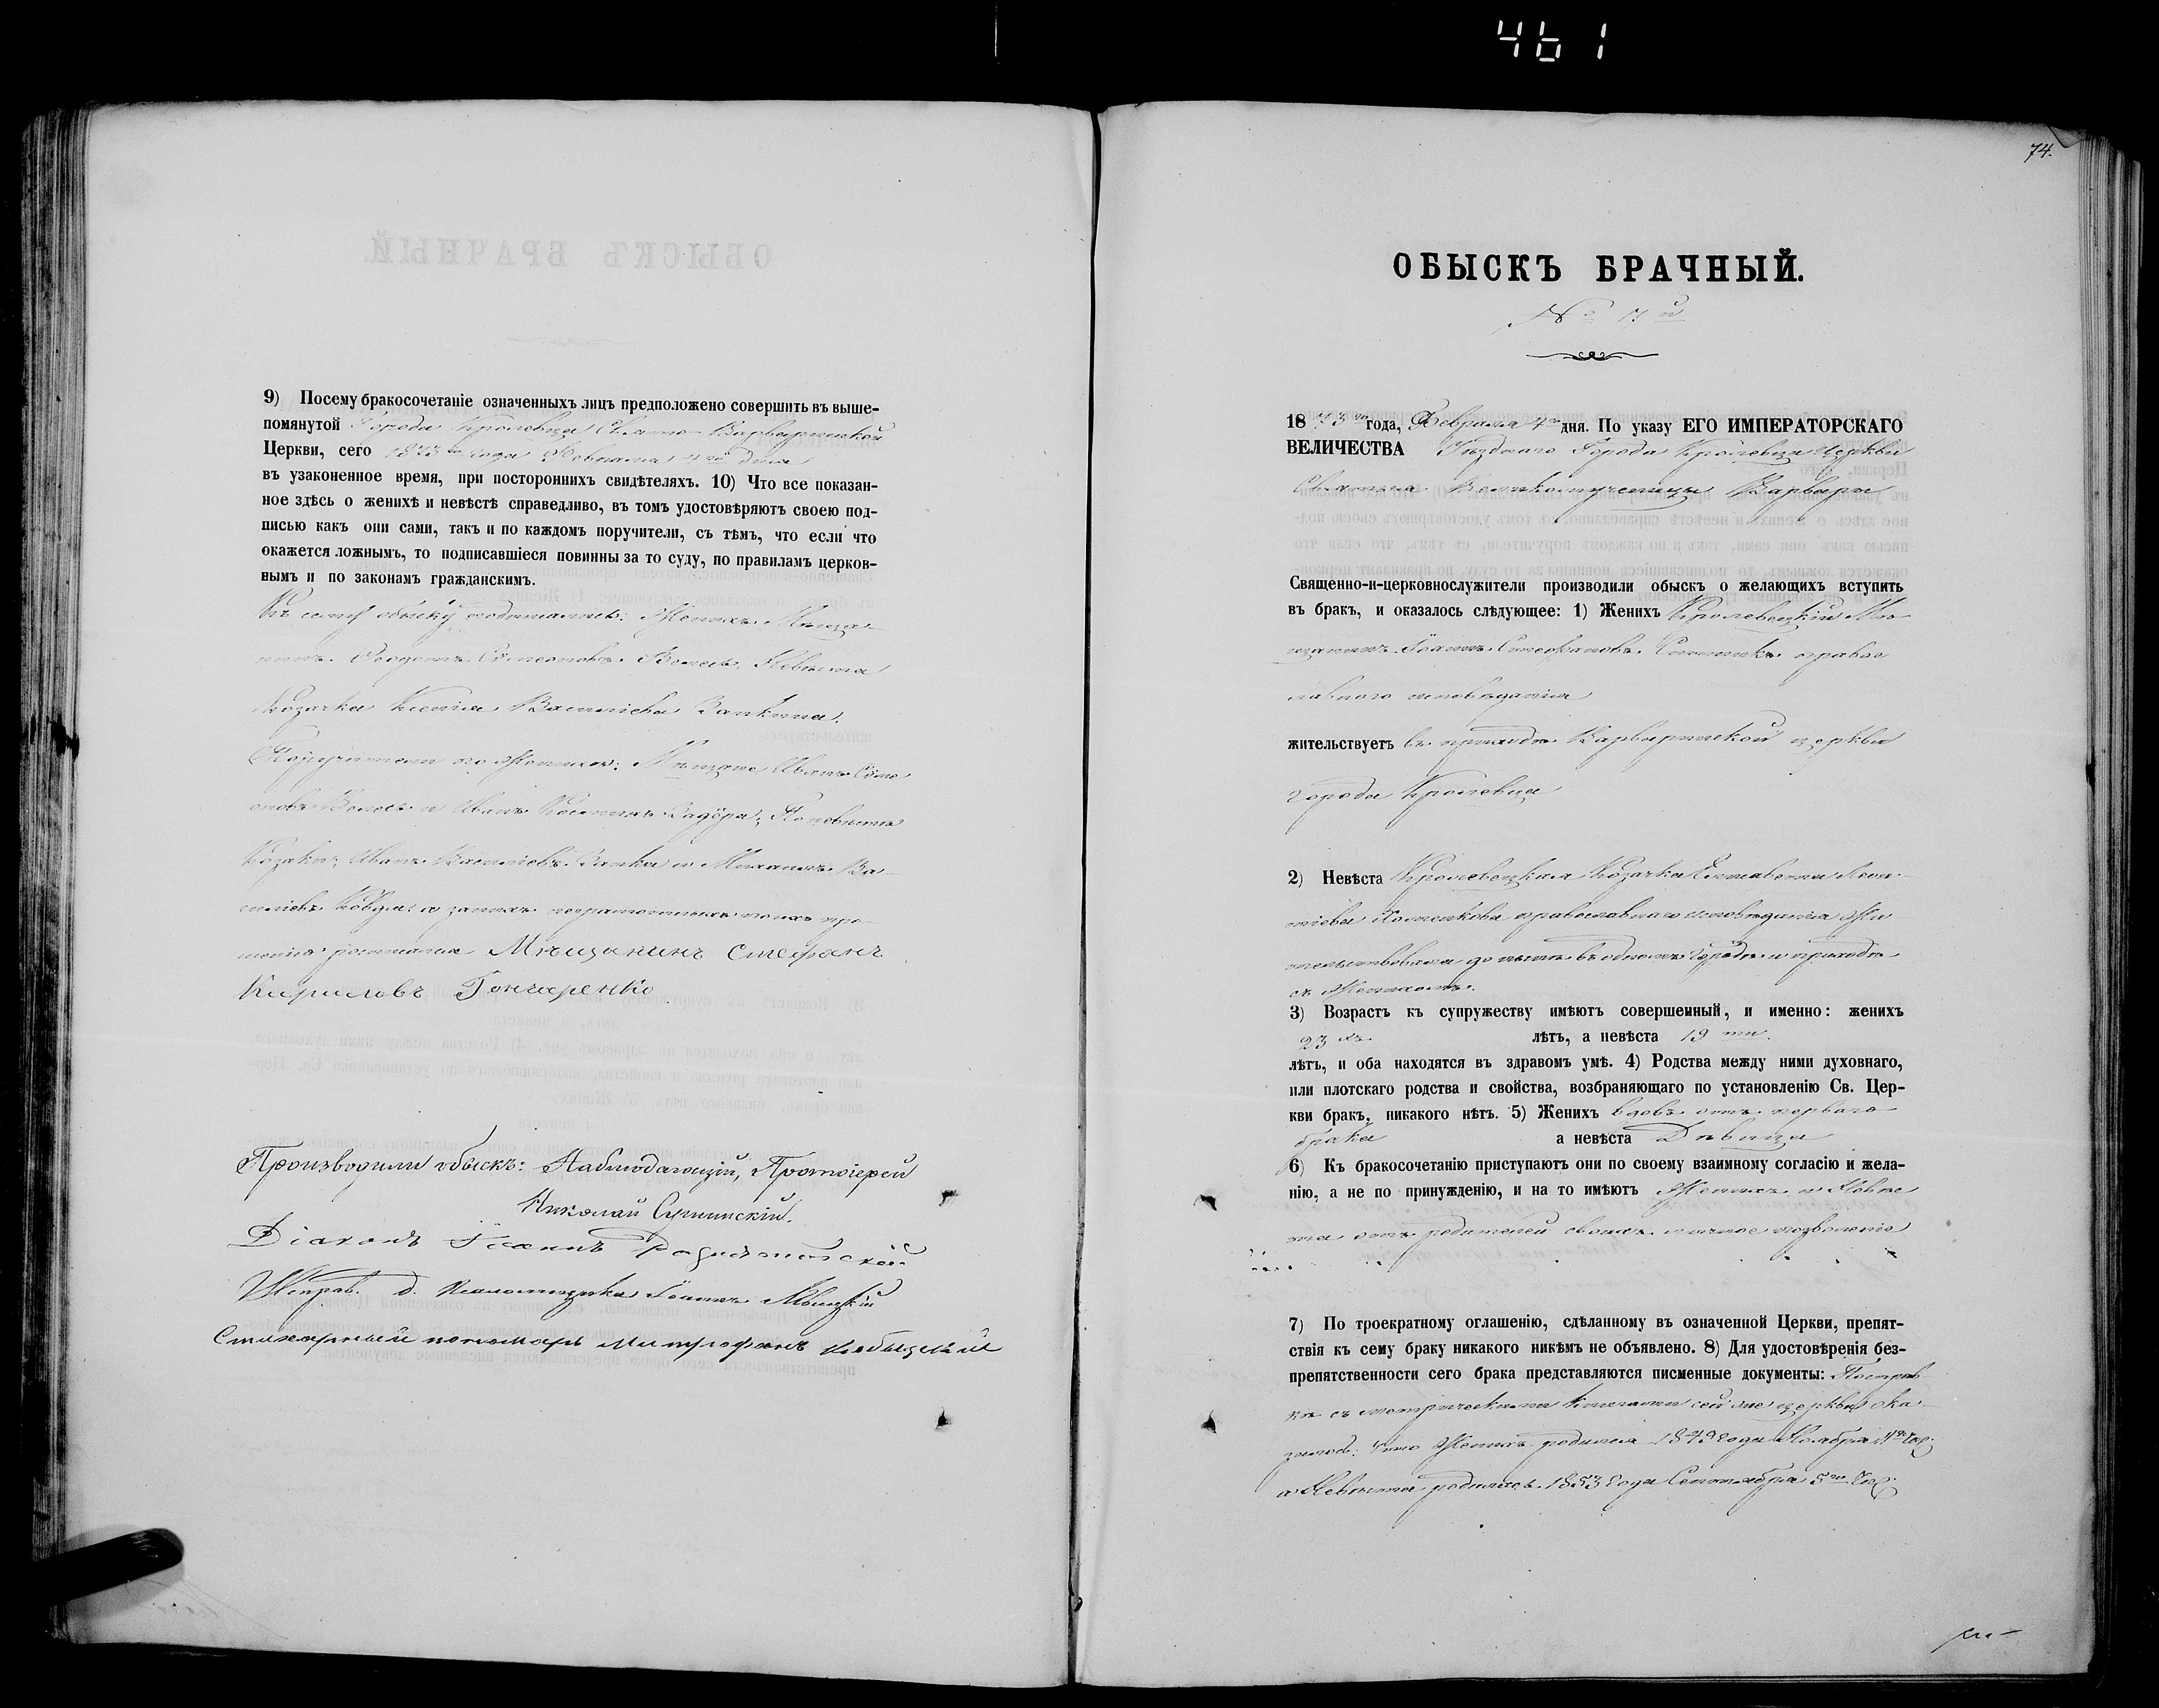 461
74.
9) Посему бракосочетаніе означенныхъ лицъ предположено совершить въ выше-
помянутой Города Кролевца Свято-Варваринской
Церкви, сего 1873го года Февраля 4го дня
въ узаконенное время, при постороннихъ свидѣтеляхъ. 10) Что все показан-
ное здѣсь о женихѣ и невѣстѣ справедливо, въ томъ удостовѣряютъ своею под-
писью какъ они сами, такъ и по каждомъ поручители, съ тѣмъ, что если что
окажется ложнымъ, то подписавшіеся повинны за то суду, по правиламъ церков-
нымъ и по законамъ гражданскимъ.
Къ сему обыску подписались: Женихъ Мѣща-
нинъ Ѳеодотъ Симеоновъ Невѣста
Козачка Ксенія Васильева
Поручители по Женихѣ: Мѣщане Иванъ Симе
оновъ и Иванъ Задёра; По невѣстѣ
Козаки: Иванъ Васильевъ и Михаилъ Ва-
сильевъ а за нихъ неграмотныхъ по ихъ про-
шенію росписался Мѣщанинъ Стефанъ
Кириловъ Гончаренко
Производили обыскъ: Наблюдающій, Протоіерей
Николай
Діаконъ Іоаннъ
Исправ. д. Псаломщика Іоаннъ
Стихарный пономарь Митрофанъ
ОБЫСКЪ БРАЧНЫЙ.
№ 7й
1873го года, Февраля 4го дня. По указу ЕГО ИМПЕРАТОРСКАГО
ВЕЛИЧЕСТВА Уѣзднаго Города Кролевца Церкви
Святыя Великомученицы Варвары
Священно-и-церковнослужители производили обыскъ о желающихъ вступить
въ бракъ, и оказалось слѣдующее: 1) Женихъ Кролевецкій Мѣ-
щанинъ Іоаннъ Стефановъ правос
лавного исповѣданія
жительствуетъ въ приходѣ Варваринской церкви
города Кролевца
2) Невѣста Кролевецкая Козачка Елисавета Леон-
тіева православнаго исповѣданія жи
тельствовала до нынѣ въ одномъ городѣ и приходѣ
съ Женихомъ.
3) Возрастъ къ супружеству имѣютъ совершенный, и именно: женихъ
23хъ лѣтъ, а невѣста 19ти
лѣтъ, и оба находятся въ здравомъ умѣ. 4) Родства между ними духовнаго,
или плотскаго родства и свойства, возбраняющаго по установленію Св. Цер-
кви бракъ, никакого нѣтъ. 5) Женихъ вдовъ отъ перваго
брака а невѣста Дѣвица
6) Къ бракосочетанію приступаютъ они по своему взаимному согласію и жела-
нію, а не по принужденію, и на то имѣютъ Женихъ и Невѣс
та отъ родителей своихъ личное позволеніе
7) По троекратному оглашенію, сдѣланному въ означенной Церкви, препят-
ствія къ сему браку никакого никѣмъ не объявлено. 8) Для удостовѣренія без-
препятственности сего брака представляются писменные документы: По справ
кѣ съ метрическими книгами сей же церкви ока
залось: что Женихъ родился 1849 года Ноября чис.
а Невѣста родилась 1853 года Сентября 5го чис.